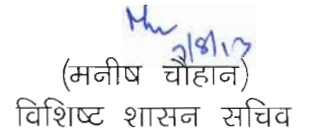 2/8/13
(मनीष चौहान)
विशिष्ट शासन सचिव